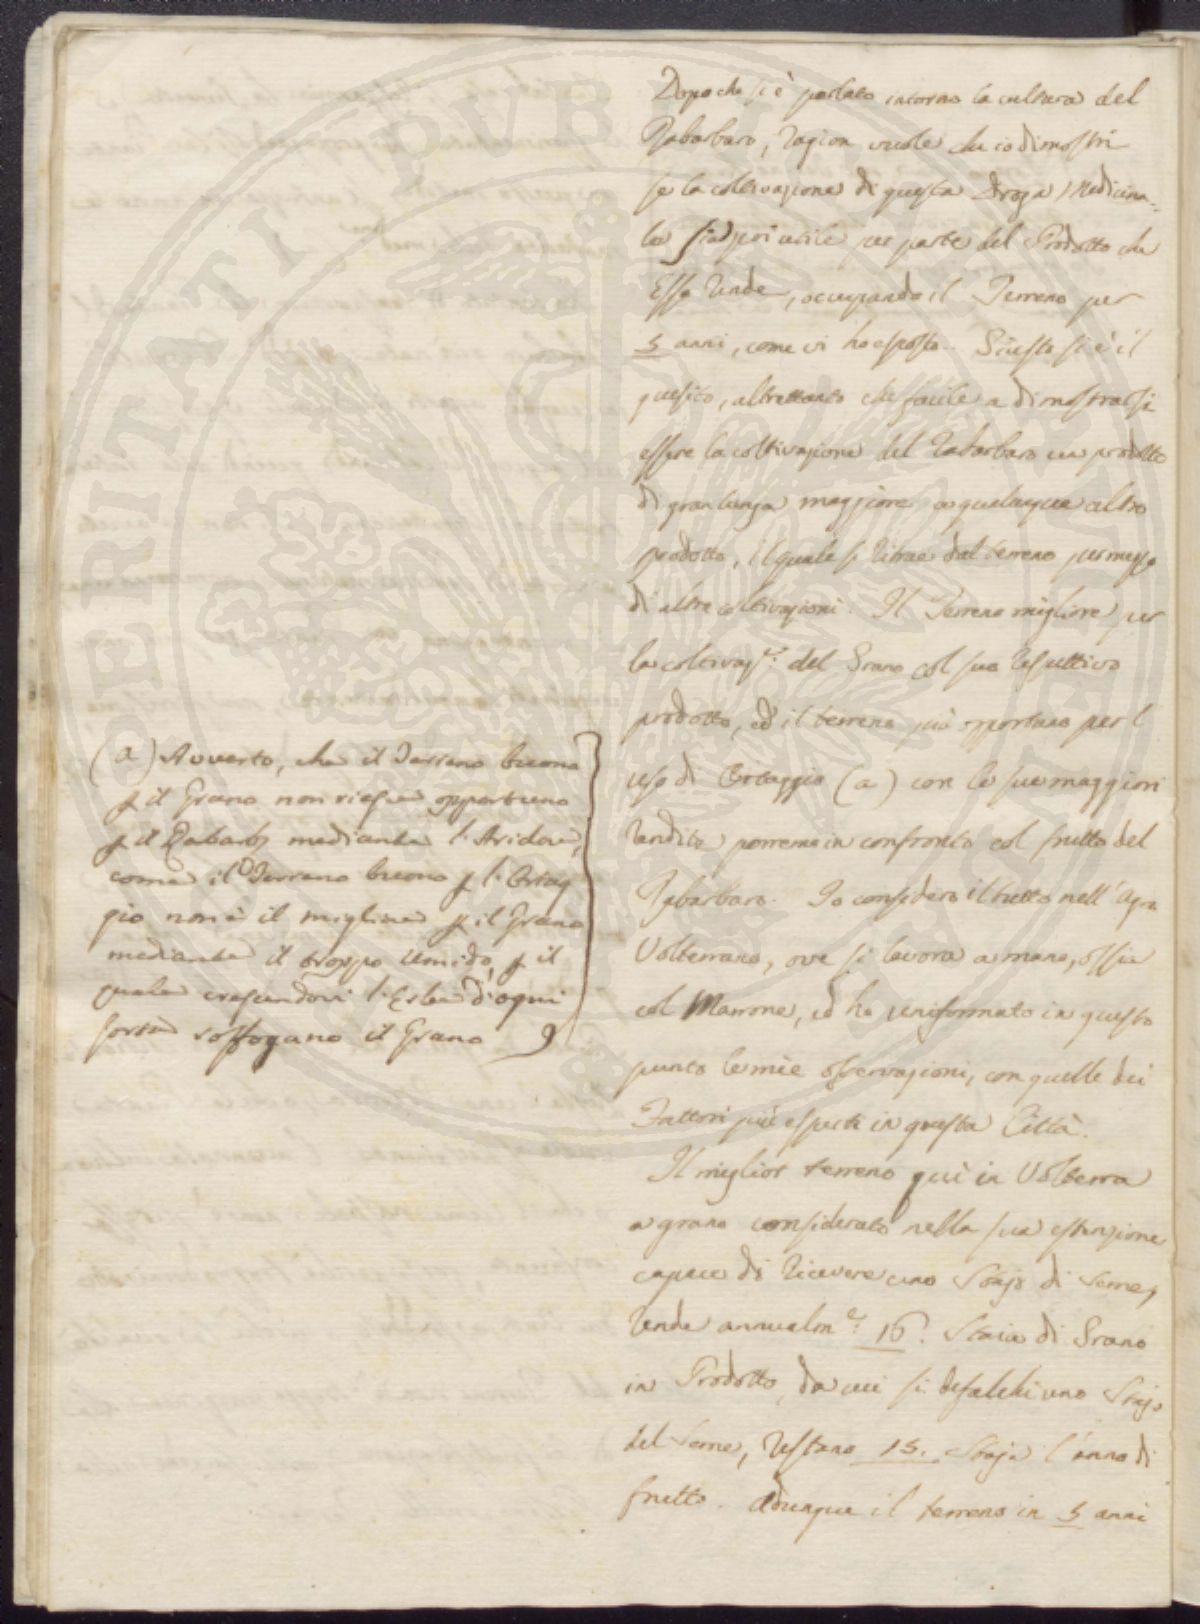 Dopo che si è parlato intorno la cultura del
Rabarbaro, ragion vuole che io dimostri
se la coltivazione di questa Droga Medicina-
le sia poi utile per parte del Prodotto che
Essa rende, occupando il Terreno per
5 anni, come vi ho esposto. Giusto si è il
quesito, altrettanto che facile a dimostrarsi
essere la coltivazione del Rabarbaro un prodotto
di gran lunga maggiore a qualunque altro
prodotto, il quale si ritrae dal terreno per mezzo
di altre coltivazioni. Il Terreno migliore per
la coltivaz.e del Grano col suo respettivo
prodotto, ed il terreno più opportuno per l
uso di Ortaggio (a) con le sue maggiori
rendite porremo in confronto col frutto del
Rabarbaro. Io considero il tutto nell'Agro
Volterrano, ove si lavora a mano, ossia
col Marrone, ed ho uniformato in questo
punto le mie osservazioni, con quelle dei
Fattori più esperti in questa Città.
Il miglior terreno quì in Volterra
a grano considerato nella sua estenzione
capace di ricevere uno Stajo di Seme,
rende annualm.e 16. Staia di Grano
in Prodotto, da cui si defalchi uno Stajo
del Seme, restano 15. Staja l'anno di
frutto. Adunque il terreno in 5 anni
(a) Avverto, che il Terreno buono
p il Grano non riesce opportuno
p il Rabarb.o mediante l'Aridore,
come il Terreno buono p l'Ortag
gio non è il migliore p il Grano
mediante il troppo Umido, p il
quale crescendovi l'Erbe d'ogni
sorte soffogano il Grano
PERITATI PUBLICAE